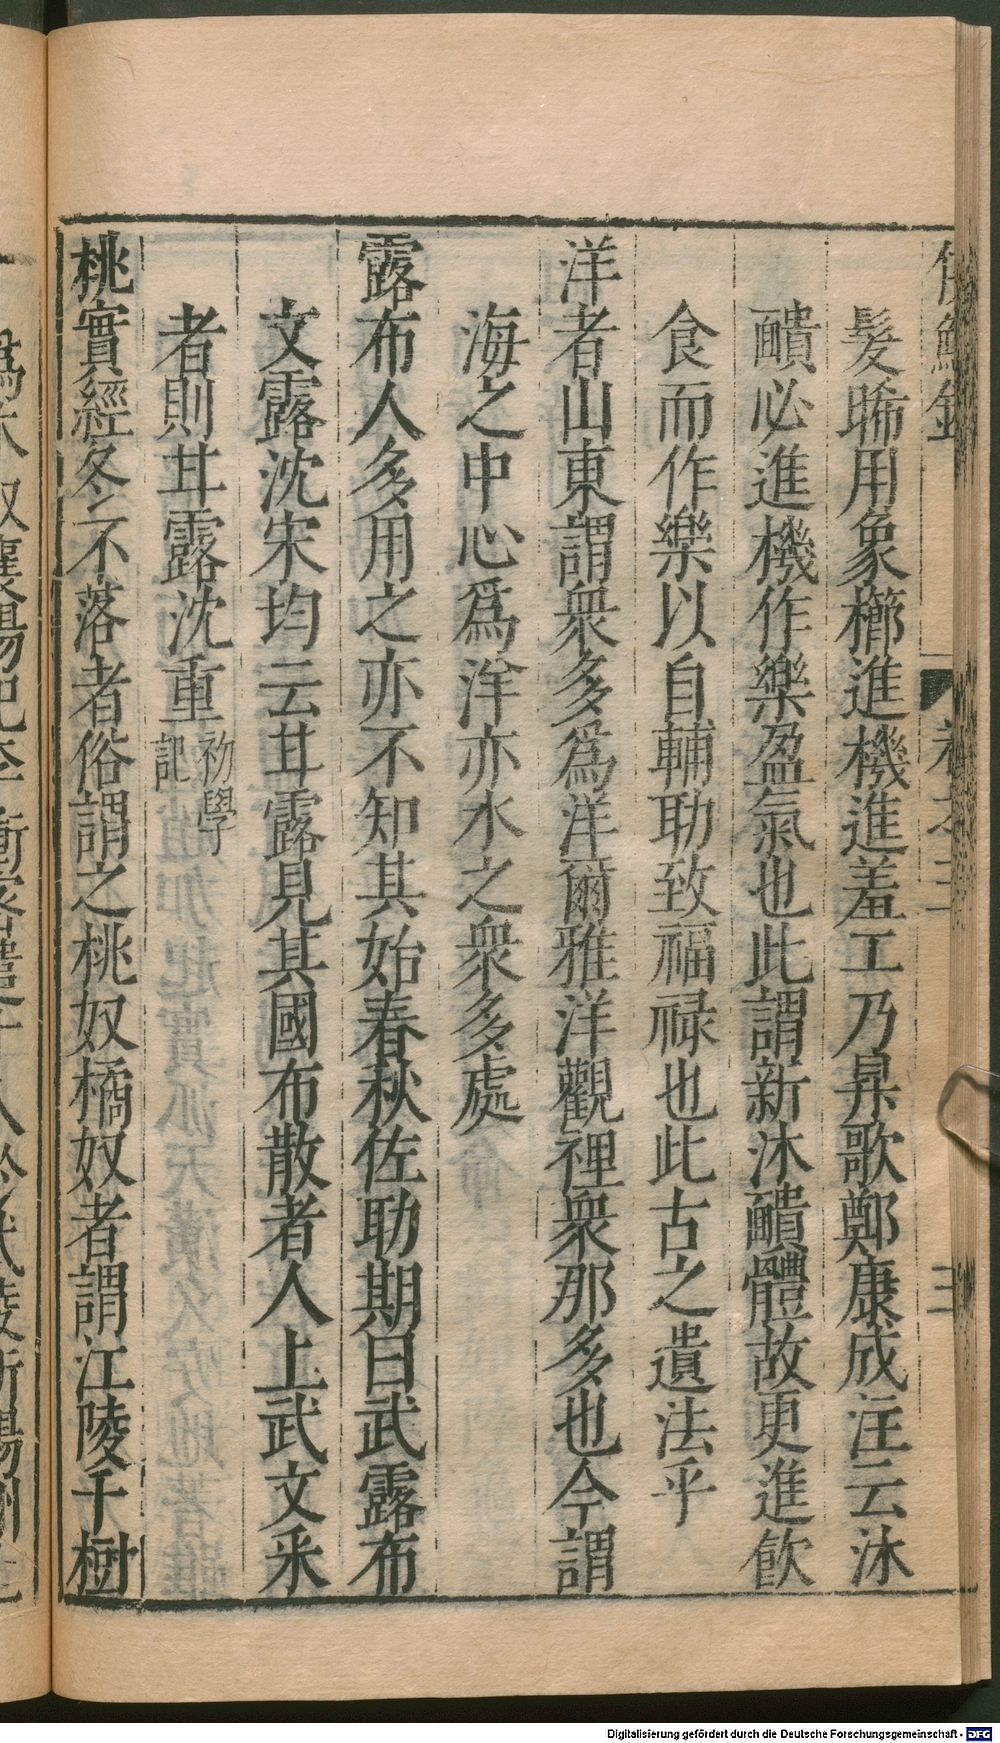 髮晞用象櫛進禨進羞工乃昇歌鄭康成注云沐
靧必進機作樂盈氣也此謂新沐靧體故更進飲
食而作樂以自輔助致福祿也此古之遺法乎
洋者山東謂衆多爲洋爾雅洋觀裡衆那多也今謂
海之中心爲洋亦水之衆多處
露布人多用之亦不知其始春秋佐助期曰武露布
文露沈宋均云甘露見其國布散者人上武文采
者則甘露沈重初學記
桃實經冬不落者俗謂之桃奴橘奴者謂江陵千樹
Digitalisierung gefördert durch die Deutsche Forschungsgemeinschaft - DFG